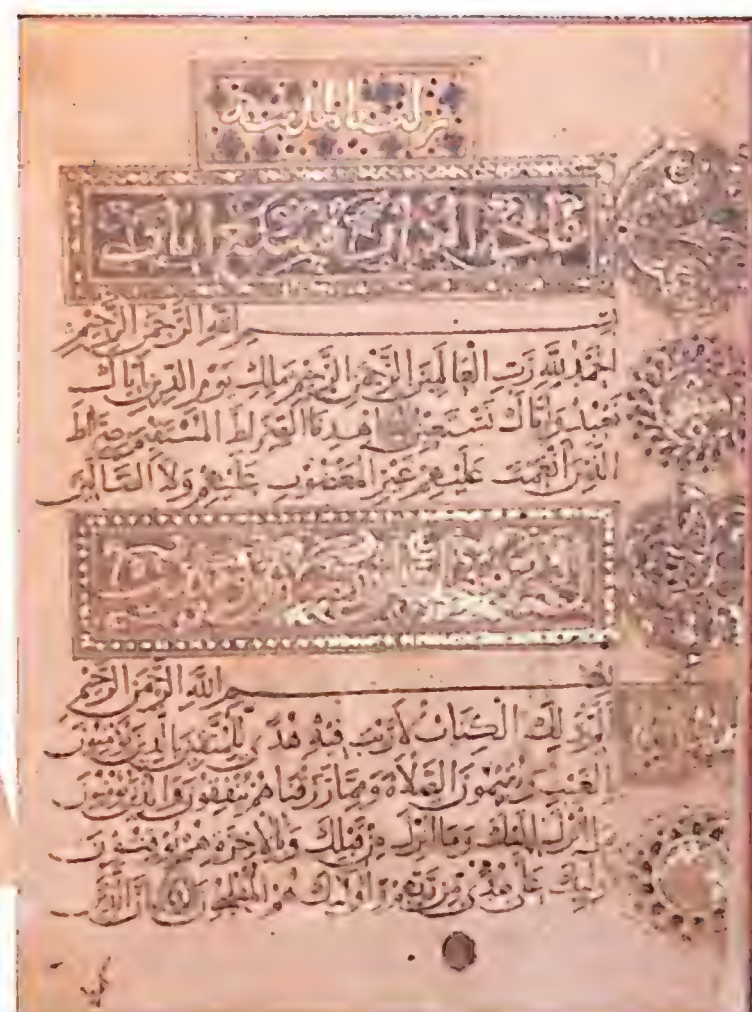 نزلت بالمدينة
فاتحة الكتاب سبع آيات
بسم الله الرحمن الرحيم
الحمد لله رب العالمين الرحمن الرحيم مالك يوم الدين اياك
نعبد واياك نستعين اهدنا الصراط المستقيم صراط
الذين انعمت عليهم غير المغضوب عليهم ولا الضالين
بسم الله الرحمن الرحيم
الم ذلك الكتاب لا ريب فيه هدى للمتقين الذين يؤمنون
بالغيب ويقيمون الصلاة ومما رزقناهم ينفقون والذين يؤمنون
بما انزل اليك وما انزل من قبلك وبالاخرة هم يوقنون
اوليك على هدى من ربهم واوليك هم المفلحون ان الذين